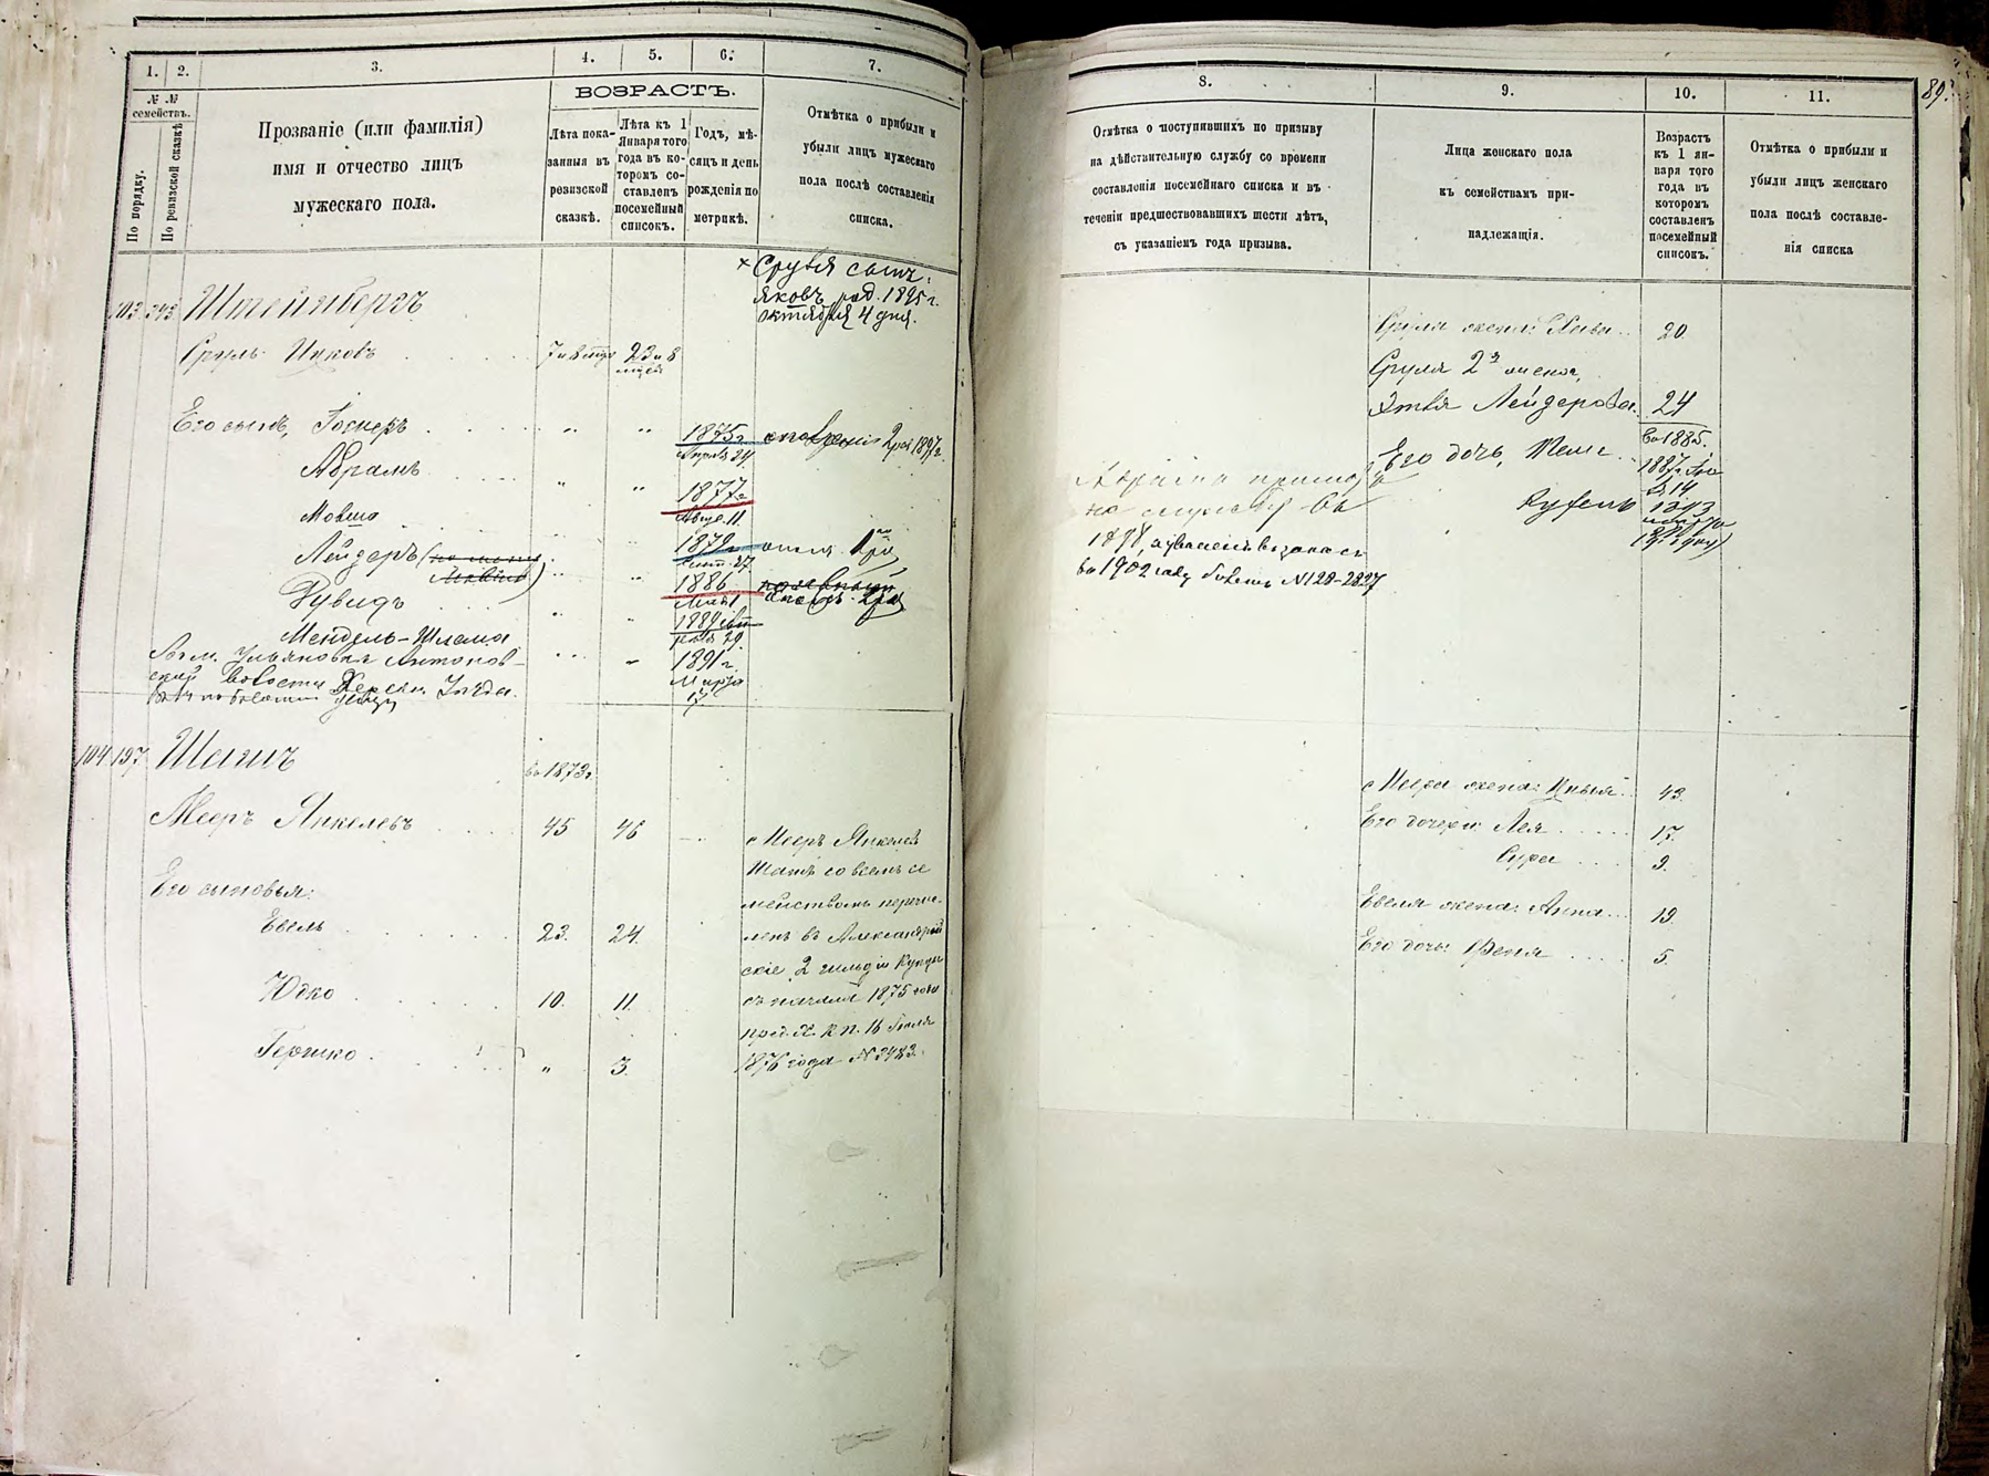 1. 2. 3. 4. 5. 6. 7.
№ № семействъ.
По порядку.
По ревизской сказкѣ
Прозваніе (или фамилія)
имя и отчество лицъ
мужескаго пола.
ВОЗРАСТЪ.
Лѣта пока-
занныя въ
ревизской
сказкѣ.
Лѣта къ 1
Января того
года въ ко-
торомъ со-
ставленъ
посемейный
списокъ.
Годъ, мѣ-
сяцъ и день
рожденія по
метрикѣ.
Отмѣтка о прибыли и
убыли лицъ мужескаго
пола послѣ составленія
списка.
× Сруля сынъ:
Яковъ род. 1895 г.
октября 4 дня.
103 343 Штейнбергъ
Сруль Ицковъ 7 и 8 23 и 8
Его сынъ, Іосперъ " " 1875 г.
Апрѣля 24
2 1897 г.
Абрамъ " " 1877 г.
Авгус. 11.
Мовша
1879
27
Лейдеръ ( ) " " 1886
Мая 1
Рувидъ " " 1889
29.
Мендель-Шлема " " 1891 г.
Марта
17
Ульяновка Антонов-
ской волости Херсон. Уѣзда.
104 197 Шатъ
въ 1873 г.
Мееръ Янкелевъ 45 46
Его сыновья:
Евель 23. 24.
Юдко 10. 11.
Гершко " 3.
Мееръ Янкелев
Шатъ со всемъ се
мействомъ перечис-
ленъ въ Александрій
скіе 2 гильдіи Купцы
съ начала 1875 года
пред. Х. К. П. 16 Іюля
1876 года № 3483.
8. 9. 10. 11.
89.
Отмѣтка о поступившихъ по призыву
на дѣйствительную службу со времени
составленія посемейнаго списка и въ
теченіи предшествовавшихъ шести лѣтъ,
съ указаніемъ года призыва.
Лица женскаго пола
къ семействамъ при-
надлежащія.
Возрастъ
къ 1 ян-
варя того
года въ
которомъ
составленъ
посемейный
списокъ.
Отмѣтка о прибыли и
убыли лицъ женскаго
пола послѣ составле-
нія списка
Сруля жена: Хава 20.
Сруля 2я жена,
Этля Лейдерова. 24
въ 1885.
Его дочь,
1887 г.
14
Абрама принят
на службу въ
1898, а уволенъ въ запасъ
въ 1902 году билетъ № 128-2827
Руфель 1893
Меера жена: 43.
Его дочери: Лея 17.
Сура 9.
Евеля жена: Анна 19
Его дочь: Феня 5.